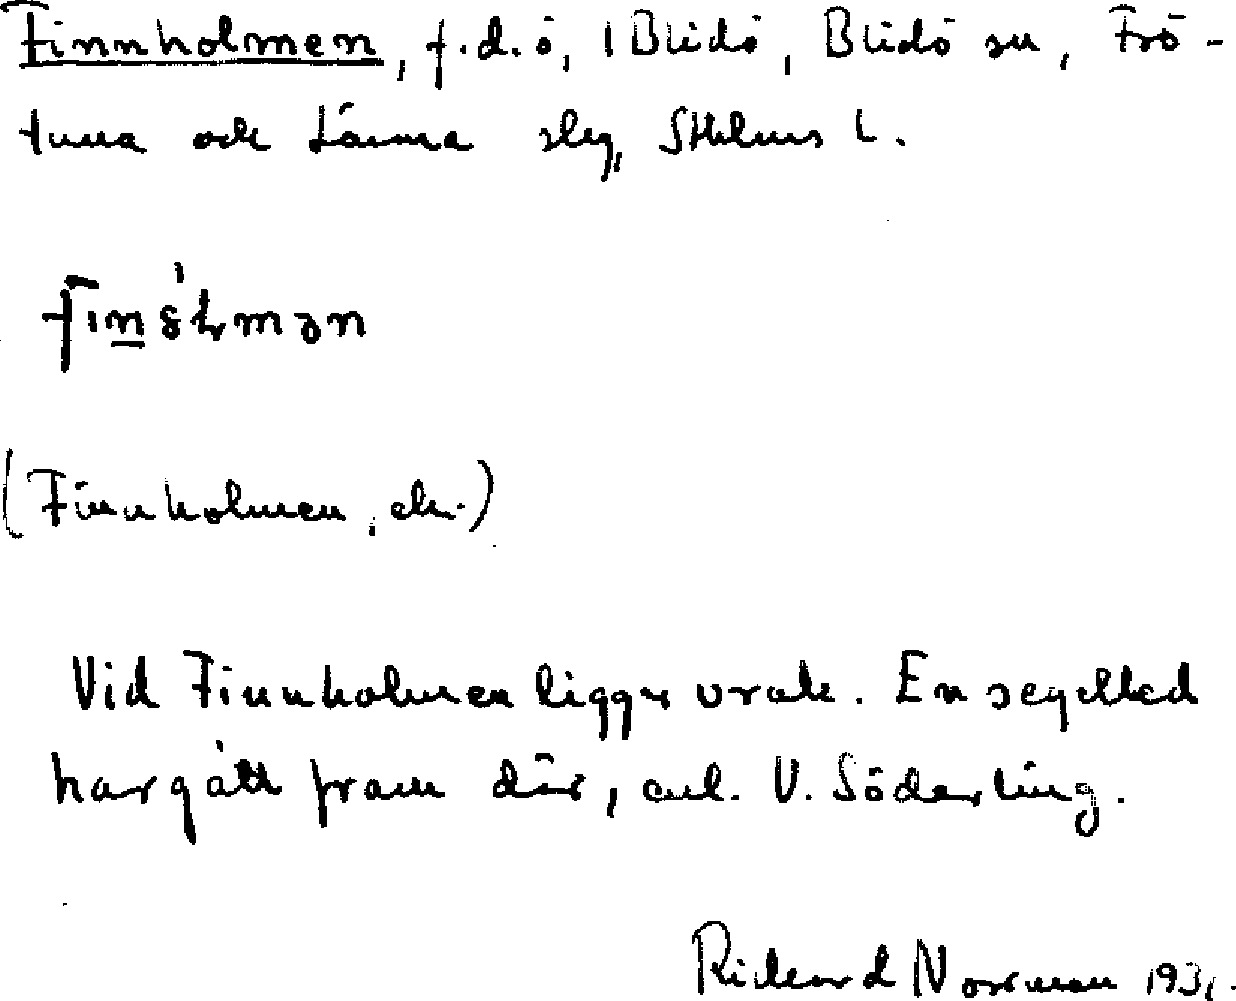 Finnholmen, f.d. ö, i Blidö, Blidö sn, Frö-
tuna och Länna slg, Sthlms L.
(Finnholmen, ek.)
Vid Finnholmen ligger vrak. En segelled
har gått fram där, enl. V. Söderling.
Rickard Norrman 1931.